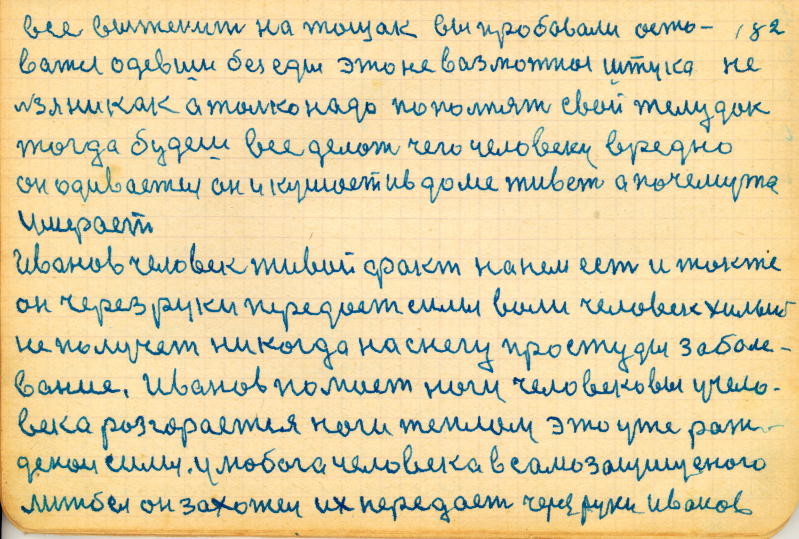 все выженит на тощак вы пробовали оста- 182
ватся одевши без еды это не вазможная штука не
лзя никак а толко надо пополнят свой желудок
тогда будеш все делат чего человеку вредно
он одивается он и кушоет и в доме живет а почемужа
умерает
Иванов человек живой факт на нем ест и также
он через руки передает силы воли человек хилый
не получет никогда на снегу простуды забале-
вание. Иванов помоет ноги человековы у чело-
века розгорается ноги теплом это уже раж-
деной силы. у любога человека в самозащуценого
лиж бы он захотел их передает через руки Иванов